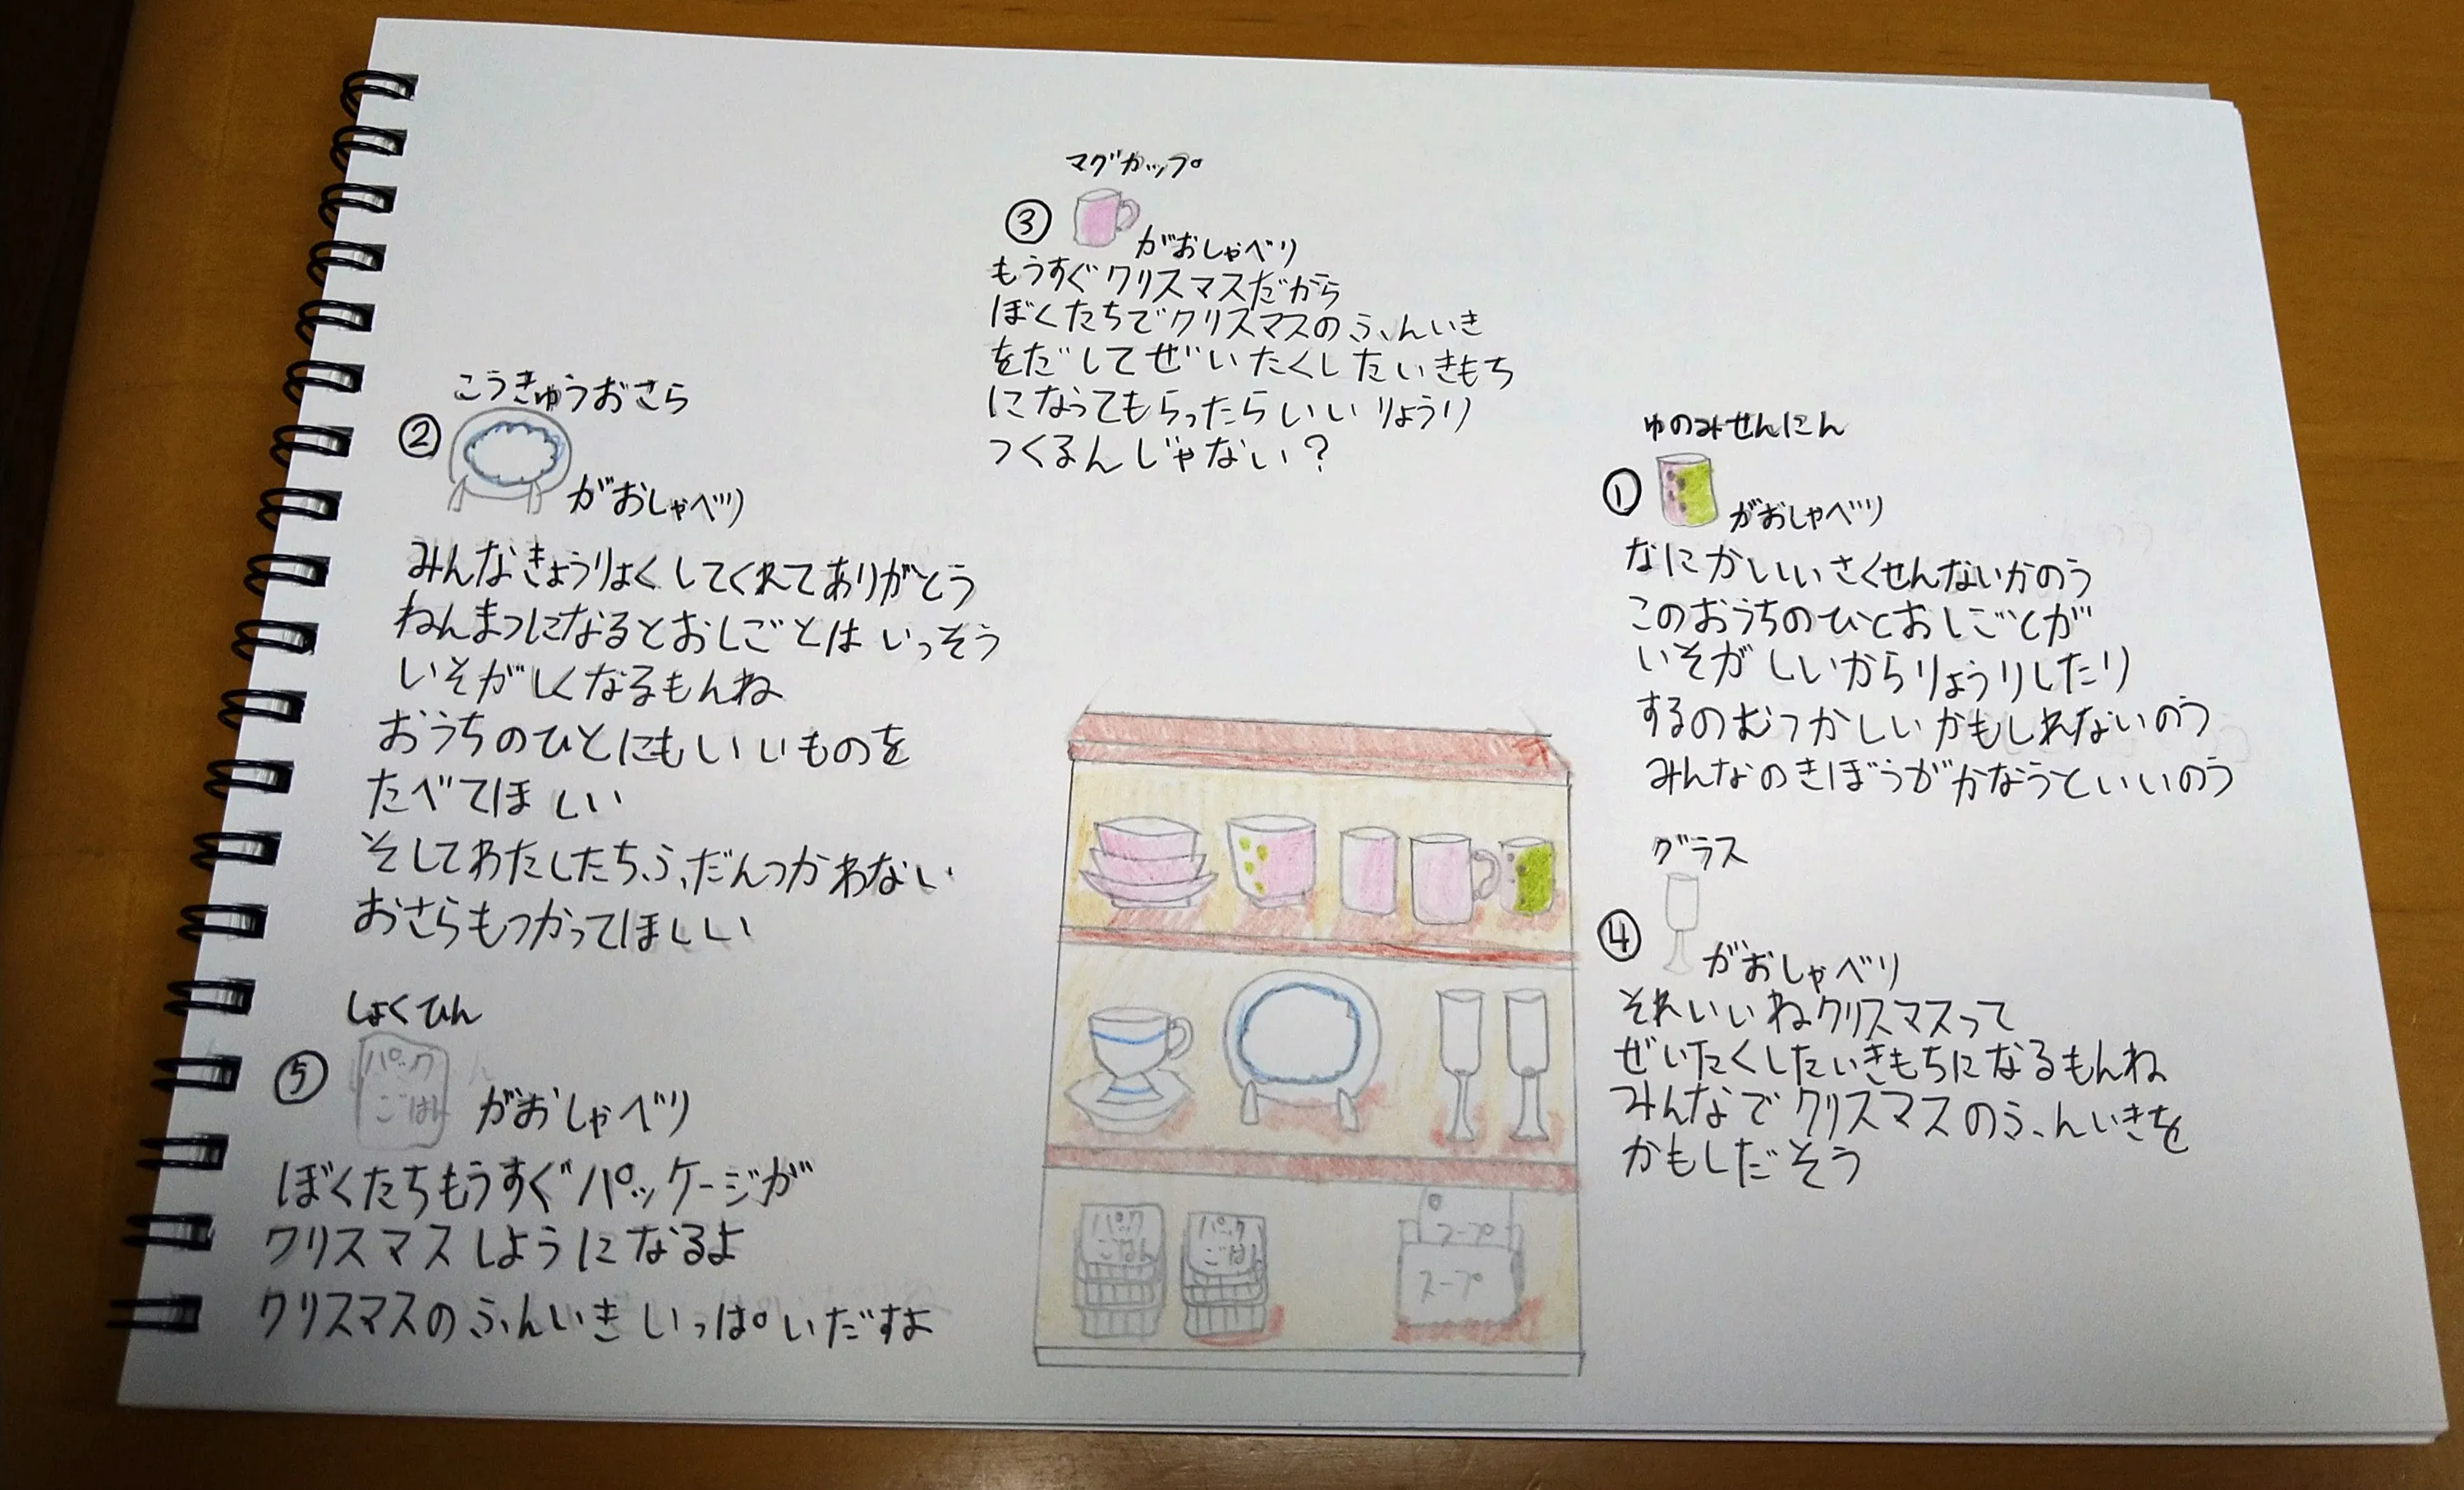 ゆのみせんにん
①
がおしゃべり
なにかいいさくせんないかのう
このおうちのひとおしごとが
いそがしいからりょうりしたり
するのむつかしいかもしれないのう
みんなのきぼうがかなうといいのう
こうきゅうおさら
②
がおしゃべり
みんなきょうりょくしてくれてありがとう
ねんまつになるとおしごとはいっそう
いそがしくなるもんね
おうちのひとにもいいものを
たべてほしい
そしてわたしたちふだんつかわない
おさらもつかってほしい
マグカップ
③
がおしゃべり
もうすぐクリスマスだから
ぼくたちでクリスマスのふんいき
をだしてぜいたくしたいきもち
になってもらったらいいりょうり
つくるんじゃない?
グラス
④
がおしゃべり
それいいねクリスマスって
ぜいたくしたいきもちになるもんね
みんなでクリスマスのふんいきを
かもしだそう
しょくひん
⑤
パック
ごはん
がおしゃべり
ぼくたちもうすぐパッケージが
クリスマスしようになるよ
クリスマスのふんいきいっぱいだすよ
パック
ごはん
パック
ごはん
スープ
スープ